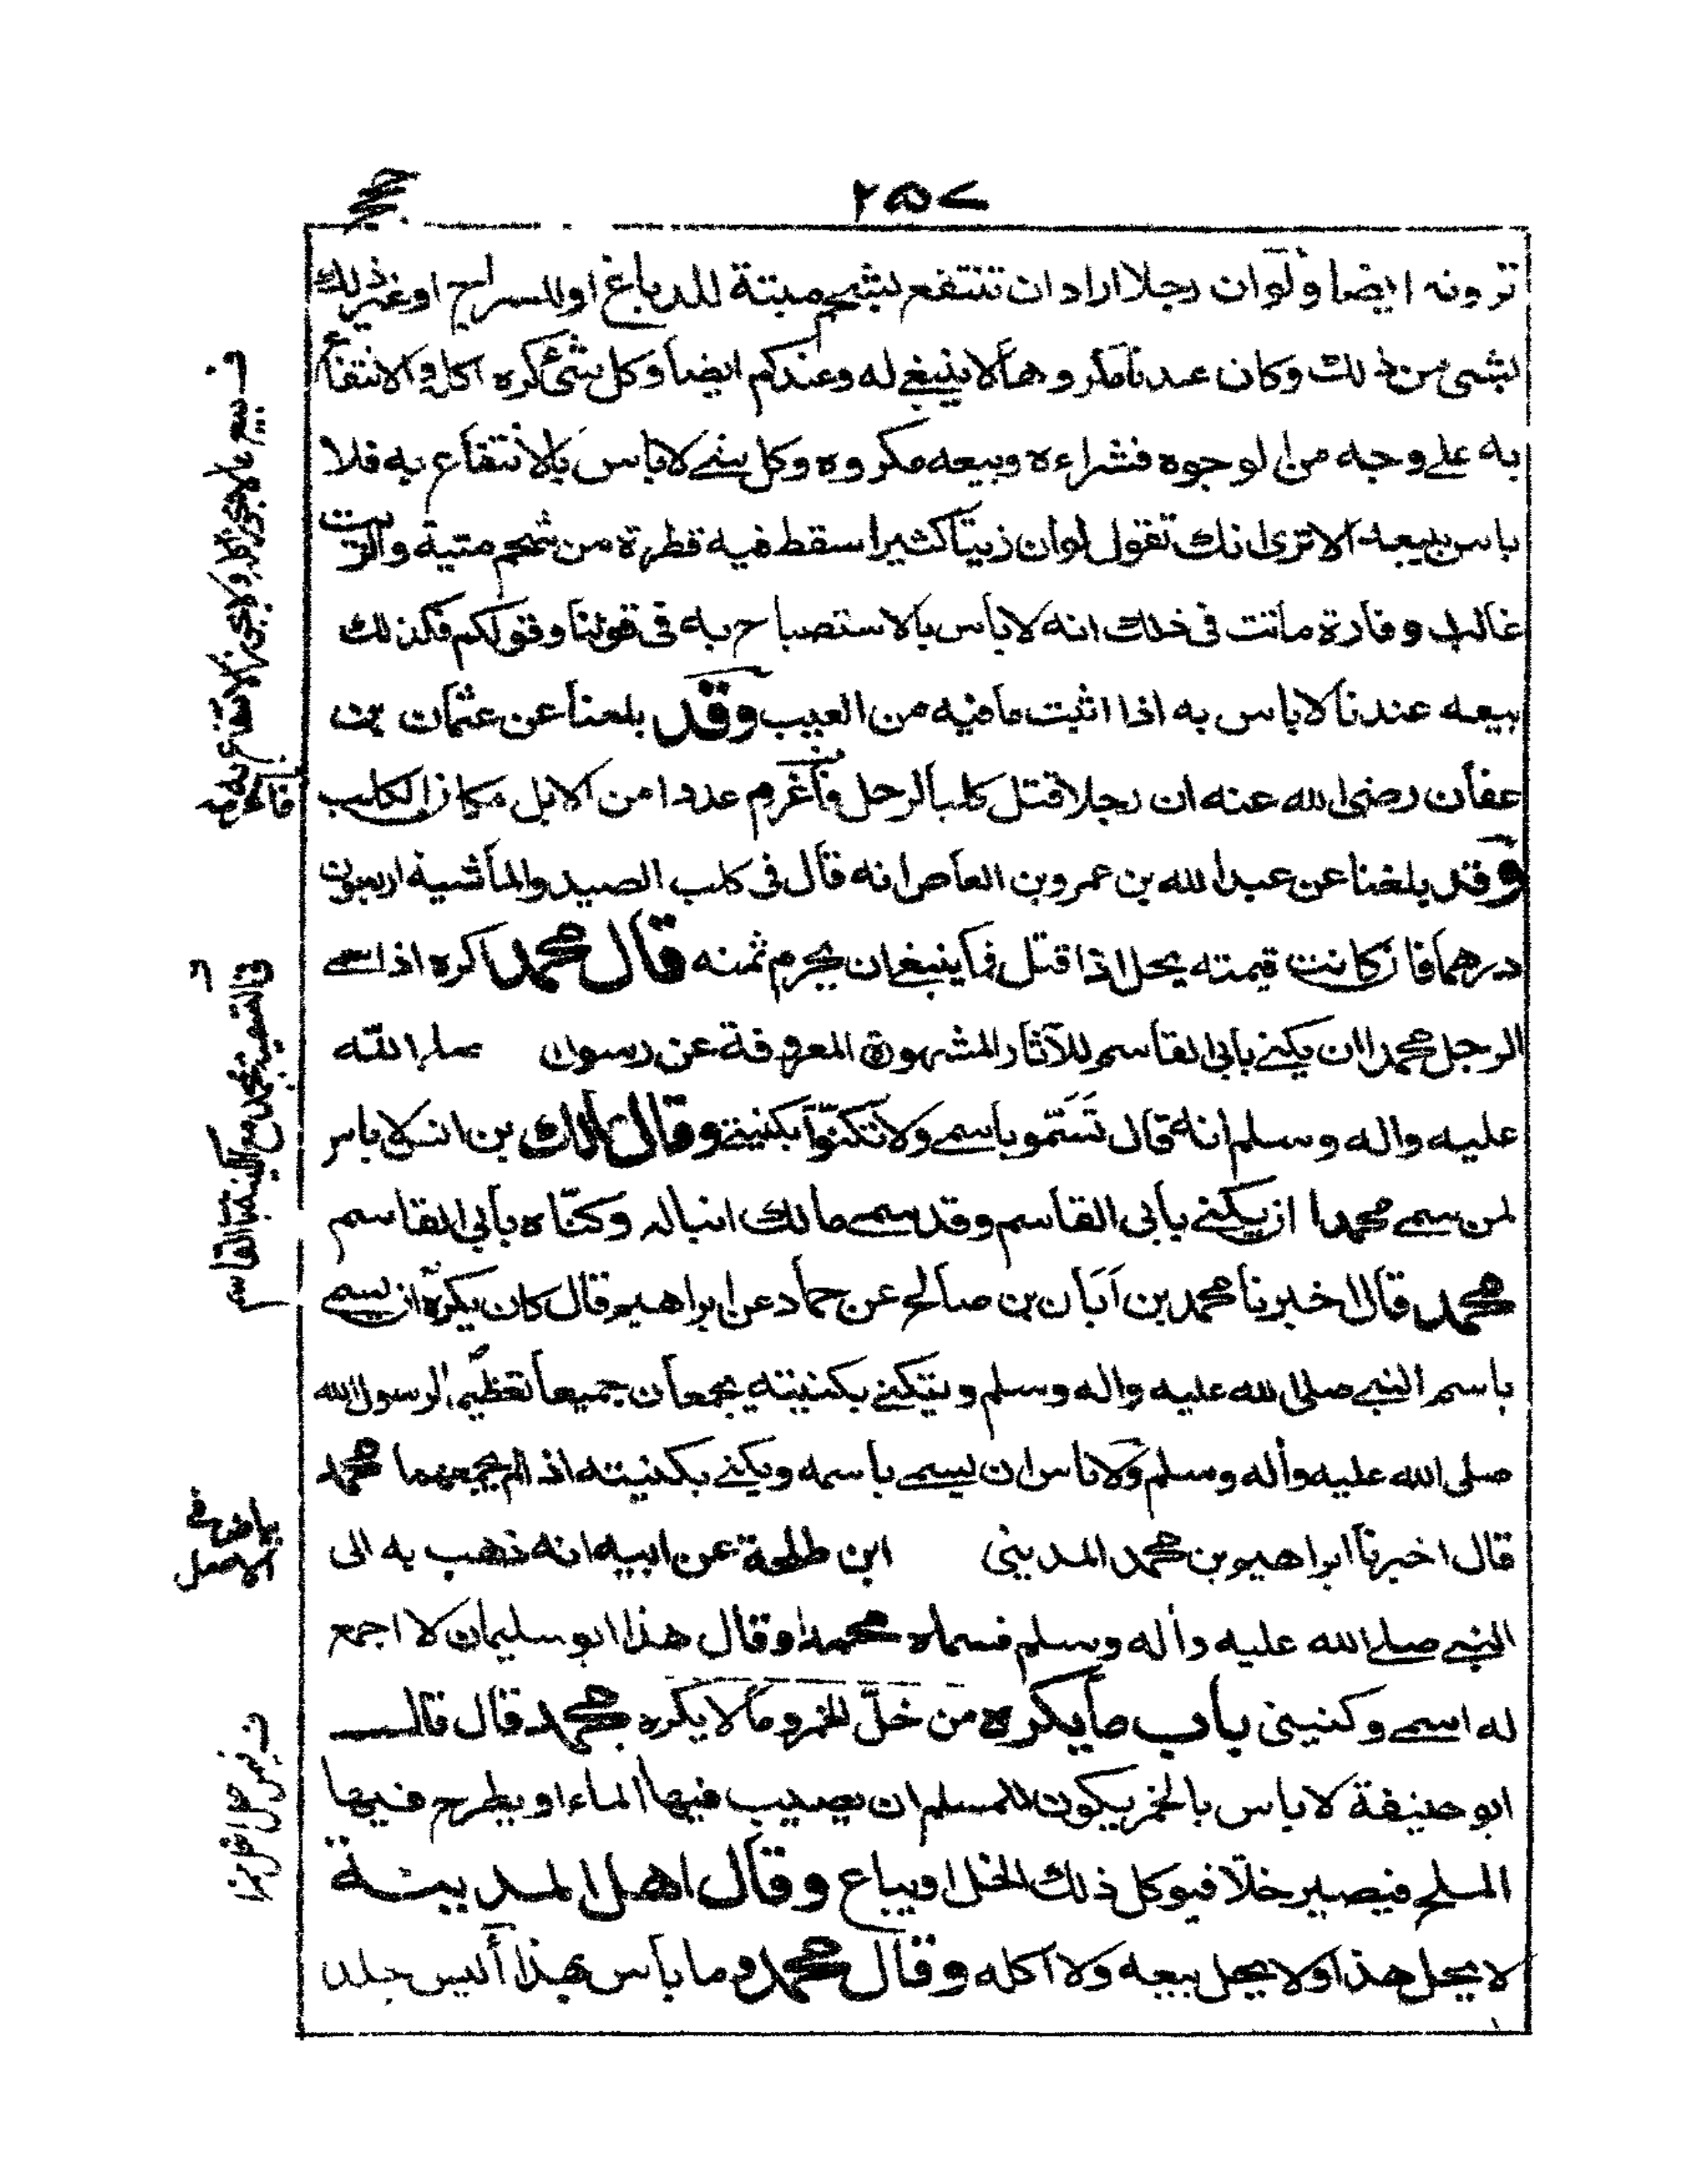 ٢٥٧
ترونه ايضا ولو ان رجلا اراد ان تنتفع بشحم ميتة للدباغ او للسراج او غير ذلك
بشئ من ذلك وكان عندنا مكروها لا ينبغي له وعندكم ايضا وكل شئ كره اكله والانتفاع
به على وجه من الوجوه فشراءه وبيعه مكروه وكل شئ لا باس بالانتفاع به فلا
باس ببيعه الا ترى انك تقول لو ان زيتا كثيرا سقط فيه قطرة من شحم ميتة والزيت
غالب وفارة ماتت فى ذلك انه لا باس بالاستصباح به فى قولنا وقولكم فكذلك
بيعه عندنا لا باس به اذا اثبت ما فيه من العيب وقد بلغنا عن عثمان بن
عفان رضى الله عنه ان رجلا قتل كلبا لرجل فأغرم عددا من الابل مكان الكلب
وقد بلغنا عن عبد الله بن عمرو بن العاص انه قال فى كلب الصيد والماشية اربعون
درهما فان كانت قيمته يحل اذا قتل فما ينبغى ان يحرم ثمنه قال محمد اكره اذا سمى
الرجل محمدا ان يكنى بابى القاسم للآثار المشهورة المعروفة عن رسول صلى الله
عليه واله وسلم انه قال تسَمّو باسمى ولا تكنّوا بكنيتى وقال مالك بن انس لا باس
لمن سمى محمدا ان يكنى بابى القاسم وقد سمى مالك ابنا له وكنّاه بابى القاسم
محمد قال اخبرنا محمد بن اَبَان بن صالح عن حماد عن ابراهيم قال كان يكره ان يسمى
باسم النبى صلى الله عليه واله وسلم ويتكنى بكنيته يجمعان جميعا تعظيما لرسول الله
صلى الله عليه واله وسلم ولا باس ان يسمى باسمه ويكنى بكنيته اذا لم يجمعهما محمد
قال اخبرنا ابراهيم بن محمد المدينى ابن طلحة عن ابيه انه ذهب به الى
النبى صلى الله عليه واله وسلم فسماه محمدا وقال هذا ابو سليمان لا اجمع
له اسمى وكنيتى باب ما يكره من خلّ الخمر وما لا يكره محمد قال قال
ابو حنيفة لا باس بالخمر يكون للمسلم ان يصيب فيها الماء او يطرح فيها
الملح فيصير خلّا فيؤكل ذلك الخل او يباع وقال اهل المدينة
لا يحل هذا ولا يحل بيعه ولا اكله وقال محمد وما باس بهذا أليس جلد
فى بيع ما لا يجوز اكله ولا يجوز الانتفاع به
فى التسمية بمحمد مع الكنية بابى القاسم
بياض فى
الاصل